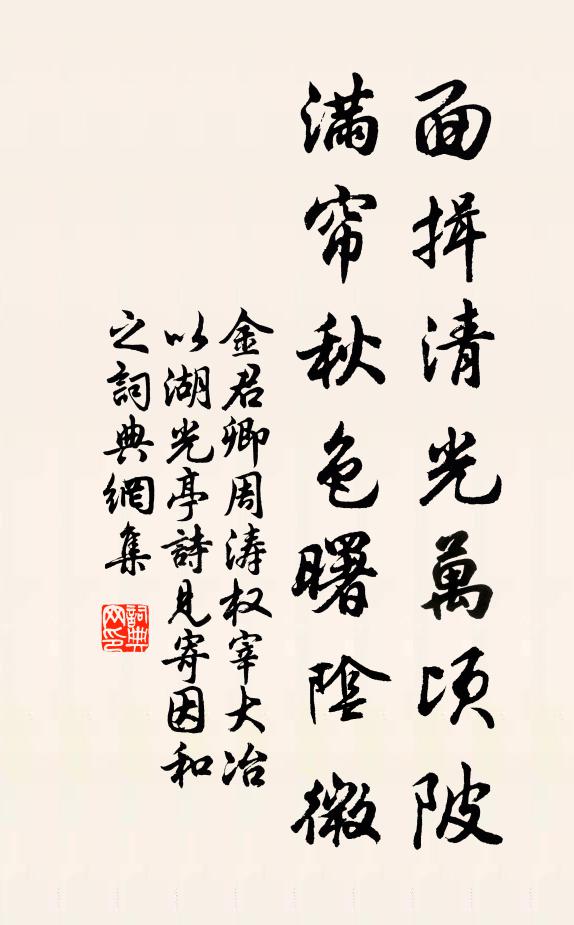 面揖清光萬頃陂
滿帘秋色曙陰微
金君卿周濤权宰大冶
以湖光亭詩見寄因和
之詞典網集
詞典
网印